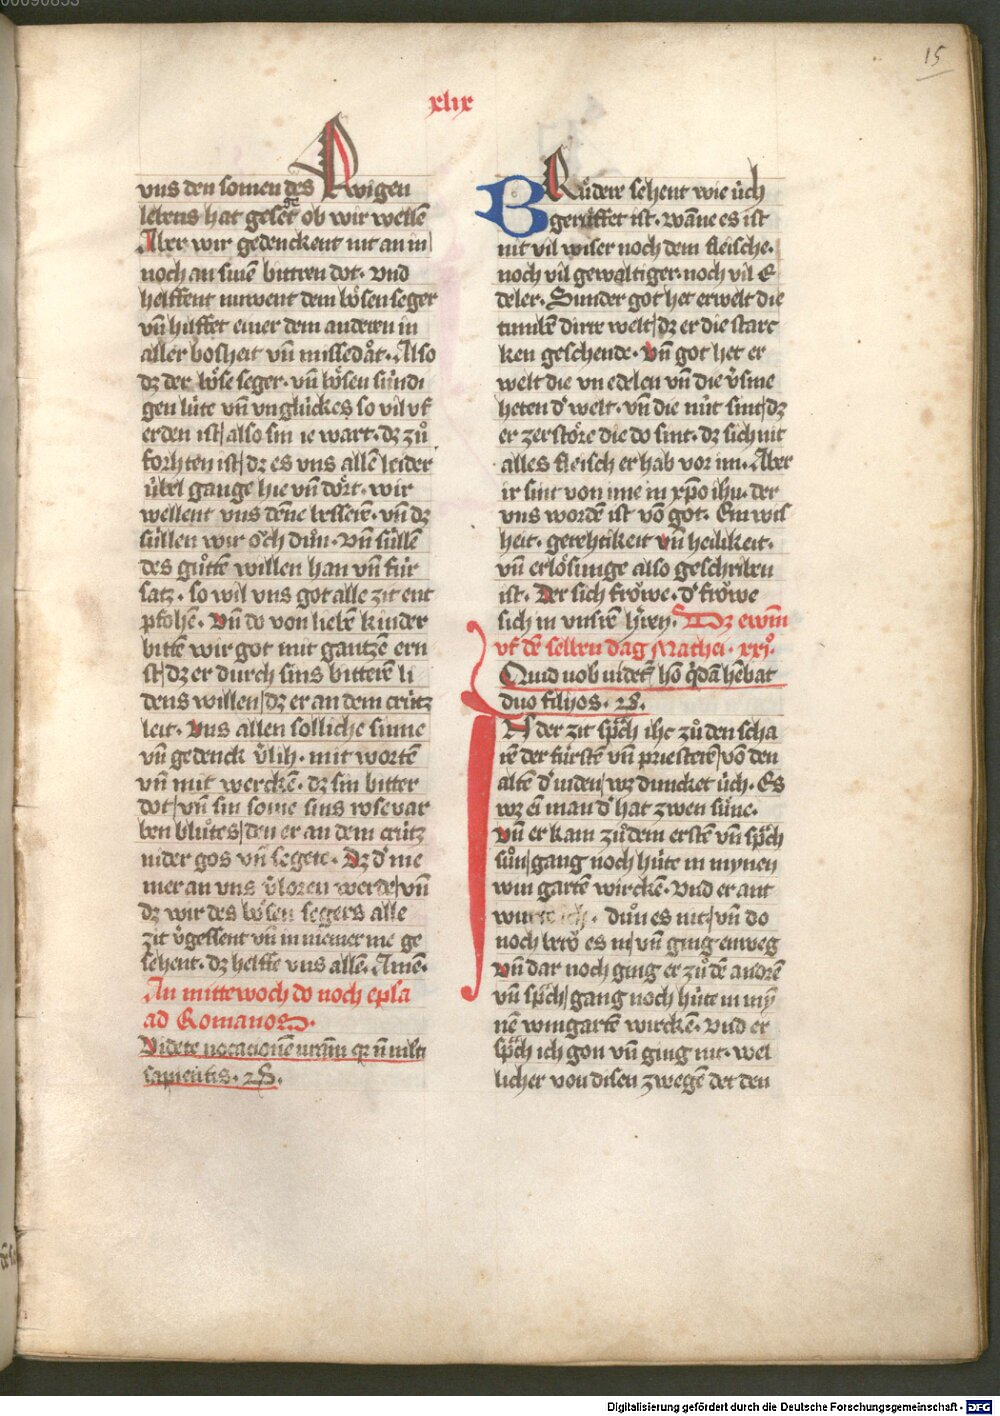 00090853
15
xlix
vns den somen des Ewigen
lebens hat geseet ob wir wellẽ
Aber wir gedenckent nit an in
noch an sinẽ bittren dot · vnd
helffent nuwent dem bösen seger
vñ hilffet einer dem anderen in
aller bosheit vñ missedåt · Also
dz der böse seger · vñ bösen sündi
gen lüte vñ vnglückes so vil vf
erden ist / also sin ie wart · dz zů
forhten ist / dz es vns allẽ leider
übel gange hie vñ dört · wir
wellent vns dẽne besseren · vñ dz
süllen wir och důn · vñ süllẽ
des gůtẽ willen han vñ für
satz · so wil vns got alle zit ent
pfohẽ · Vñ do von liebẽ kinder
bittẽ wir got mit gantzẽ ern
st / dz er durch sins bitterẽ li
dens willen / dz er an dem crütz
leit · Vns allen solliche sinne
vñ gedenck v̾lih · mit wortẽ
vñ mit werckẽ · dz sin bitter
dot / vñ sin some sins rosevar
ben blůtes / den er an dem crütz
nider gos vñ segete · Dz d' nie
mer an vns v̾loren werde / vñ
dz wir des bösen segers alle
zit v̾gessent vñ in niemer me ge
sehent · dz helffe vns allẽ · Amẽ ·
An mittewoch do noch epĺa
ad Romanos ·
Videte vocacionẽ vrãm qz ñ mlti
sapientes · 2S ·
BRůdere sehent wie üch
gerüffet ist · wãne es ist
nit vil wiser noch dem fleische ·
noch vil gewaltiger · noch vil E
deler · Sunder got het erwelt die
tumbẽ dirre welt / dz er die starc
ken geschende · Vñ got het er
welt die vn edelen vñ die v̾sme
heten d' welt · vñ die nüt sint / dz
er zerstöre die do sint · dz sich nit
alles fleisch erhab vor im · Aber
ir sint von ime in xp̃o ihu · der
vns wordẽ ist võ got · Ein wis
heit · gerehtikeit vñ heilikeit ·
vñ erlösunge also geschriben
ist · Der sich fröwe · d' fröwe
sich in vnsrẽ hr̃en · Dz ewm̃
vf dẽ selben dag Mathei · xxjº ·
Quid uob videt' hõ q̃dã hẽbat
duo filios · 2S ·
IN der zit sp̃ch ihc zů den scha
rẽ der fürstẽ vñ priesterẽ / võ den
altẽ d' iuden / wz duncket üch · Es
wz ein man d' hat zwen süne ·
vñ er kam zů dem erstẽ vñ sp̃ch
sůn / gang noch hüte in mynen
win gartẽ wirckẽ · Vnd er ant
wurte ich · důn es nit / vñ do
noch berŏ es in / vñ ging enweg
Vñ dar noch ging er zů dẽ andrẽ
vñ sp̃ch / gang noch hüte in mỹ
nẽ wingartẽ wirckẽ · Vnd er
sp̃ch ich gon vñ ging nit · wel
licher von disen zwegẽ det den
Digitalisierung gefördert durch die Deutsche Forschungsgemeinschaft - DFG